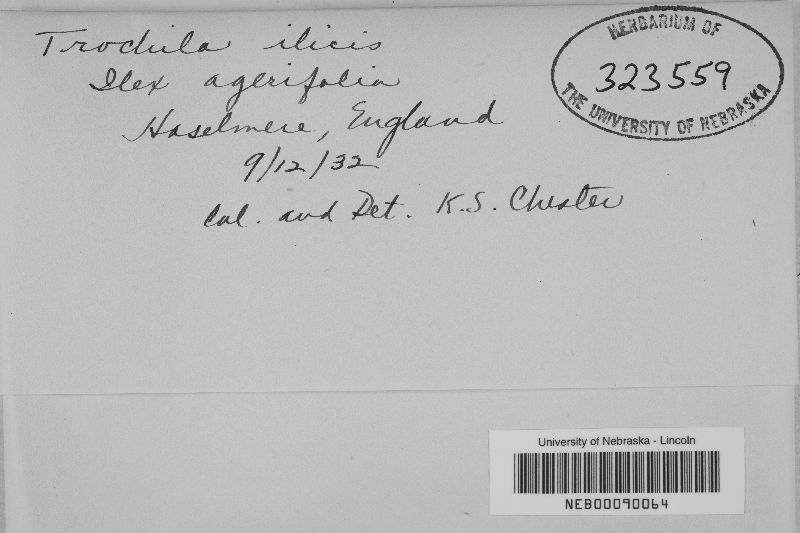 Trochila ilicis
Ilex agerifolia
Haselmere, England
9/12/32
Col. and Det. K.S. Chester
HERBARIUM OF
323559
THE UNIVERSITY OF NEBRASKA
University of Nebraska - Lincoln
NEB00090064